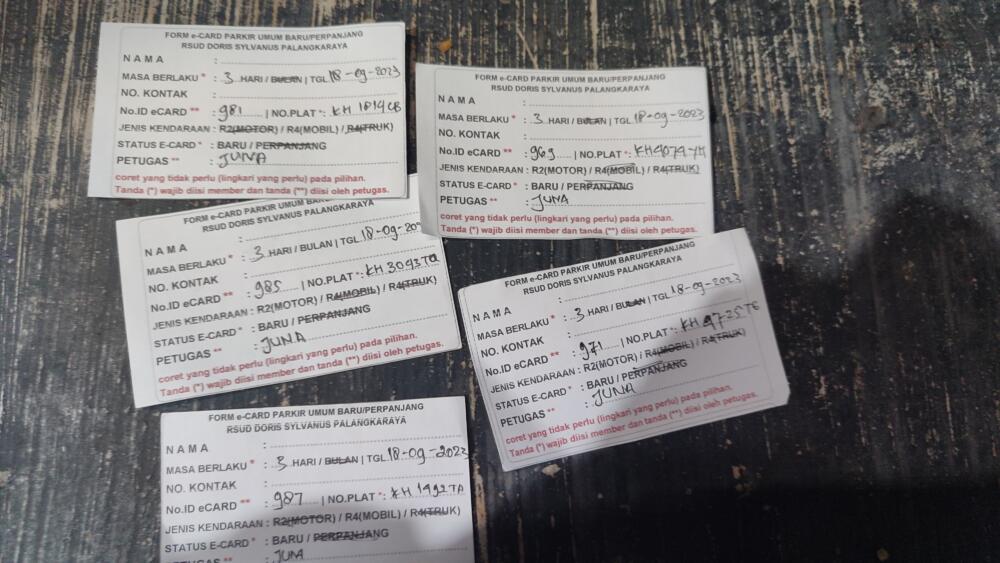 FORM e-CARD PARKIR UMUM BARU/PERPANJANG
RSUD DORIS SYLVANUS PALANGKARAYA
NAMA :
MASA BERLAKU * : 3 HARI / BULAN | TGL 18-09-2023
NO. KONTAK :
No.ID eCARD ** : 981 | NO.PLAT *: KH 1814 CB
JENIS KENDARAAN : R2(MOTOR) / R4(MOBIL) / R4(TRUK)
STATUS E-CARD * : BARU / PERPANJANG
PETUGAS ** : JUNA
coret yang tidak perlu (lingkari yang perlu) pada pilihan.
Tanda (*) wajib diisi member dan tanda (**) diisi oleh petugas.
FORM e-CARD PARKIR UMUM BARU/PERPANJANG
RSUD DORIS SYLVANUS PALANGKARAYA
NAMA :
MASA BERLAKU * : 3 HARI / BULAN | TGL 18-09-2023
NO. KONTAK :
No.ID eCARD ** : 969 | NO.PLAT *: KH 4074 YM
JENIS KENDARAAN : R2(MOTOR) / R4(MOBIL) / R4(TRUK)
STATUS E-CARD * : BARU / PERPANJANG
PETUGAS ** : JUNA
coret yang tidak perlu (lingkari yang perlu) pada pilihan.
Tanda (*) wajib diisi member dan tanda (**) diisi oleh petugas.
FORM e-CARD PARKIR UMUM BARU/PERPANJANG
RSUD DORIS SYLVANUS PALANGKARAYA
NAMA :
MASA BERLAKU * : 3 HARI / BULAN | TGL 18-09-202
NO. KONTAK :
No.ID eCARD ** : 985 | NO.PLAT *: KH 3043 TQ
JENIS KENDARAAN : R2(MOTOR) / R4(MOBIL) / R4(TRUK)
STATUS E-CARD * : BARU / PERPANJANG
PETUGAS ** : JUNA
coret yang tidak perlu (lingkari yang perlu) pada pilihan.
Tanda (*) wajib diisi member dan tanda (**) diisi oleh petugas.
FORM e-CARD PARKIR UMUM BARU/PERPANJANG
RSUD DORIS SYLVANUS PALANGKARAYA
NAMA :
MASA BERLAKU * : 3 HARI / BULAN | TGL 18-09-2023
NO. KONTAK :
No.ID eCARD ** : 971 | NO.PLAT *: KH 4725 TE
JENIS KENDARAAN : R2(MOTOR) / R4(MOBIL) / R4(TRUK)
STATUS E-CARD * : BARU / PERPANJANG
PETUGAS ** : JUNA
coret yang tidak perlu (lingkari yang perlu) pada pilihan.
Tanda (*) wajib diisi member dan tanda (**) diisi oleh petugas.
FORM e-CARD PARKIR UMUM BARU/PERPANJANG
RSUD DORIS SYLVANUS PALANGKARAYA
NAMA :
MASA BERLAKU * : 3 HARI / BULAN | TGL 18-09-2023
NO. KONTAK :
No.ID eCARD ** : 987 | NO.PLAT *: KH 1492 TA
JENIS KENDARAAN : R2(MOTOR) / R4(MOBIL) / R4(TRUK)
STATUS E-CARD * : BARU / PERPANJANG
PETUGAS ** : JUNA